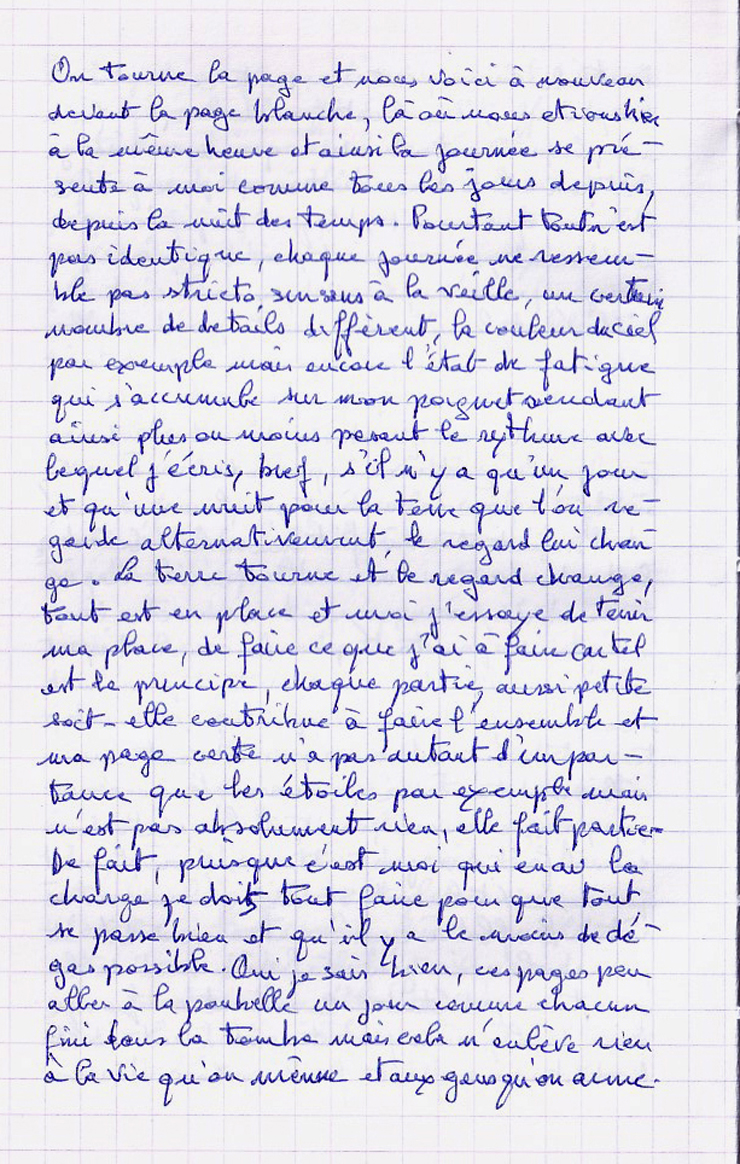 On tourne la page et nous voici à nouveau
devant la page blanche, là où nous etions hier
à la même heure et ainsi la journée se pré-
sente à moi comme tous les jours depuis,
depuis la nuit des temps. Pourtant tout n'est
pas identique, chaque journée ne ressem-
ble pas stricto sensens à la veille, un certain
nombre de details diffèrent, la couleur du ciel
par exemple mais encore l'état de fatigue
qui s'accumule sur mon poignet rendant
ainsi plus ou moins pesant le rythme avec
lequel j'écris, bref, s'il n'y a qu'un jour
et qu'une nuit pour la terre que l'on re-
garde alternativement, le regard lui chan-
ge. La terre tourne et le regard change,
tout est en place et moi j'essaye de tenir
ma place, de faire ce que j'ai à faire car tel
est le principe, chaque partie, aussi petite
soit-elle contribue à faire l'ensemble et
ma page certe n'a pas autant d'impor-
tance que les étoiles par exemple mais
n'est pas absolument rien, elle fait partie-
De fait, puisque c'est moi qui en ai la
charge je dois tout faire pour que tout
se passe bien et qu'il y a le moins de dé-
gas possible. Oui je sais bien, ces pages peu
aller à la poubelle un jour comme chacun
fini dans la tombe mais cela n'enlève rien
à la vie qu'on mène et aux gens qu'on aime.